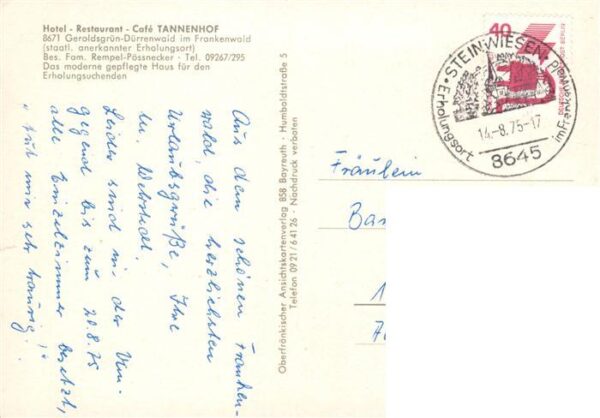 Hotel - Restaurant - Café TANNENHOF
8671 Geroldsgrün-Dürrenwaid im Frankenwald
(staatl. anerkannter Erholungsort)
Bes. Fam. Rempel-Pössnecker · Tel. 09267/295
Das moderne gepflegte Haus für den
Erholungsuchenden
Aus dem schönen Franken-
wald, die herzlichsten
Urlaubsgrüße, Ihre
Leider sind in der Um-
gegend bis zum 20.8.75
alle Einzelzimmer besetzt,
" tut mir sehr traurig!"
Oberfränkischer Ansichtskartenverlag 858 Bayreuth · Humboldtstraße 5
Telefon 0921/64126 · Nachdruck verboten
40
STEINWIESEN
Erholungsort
im Frankenwald
14.-8.75-17
8645
Fräulein